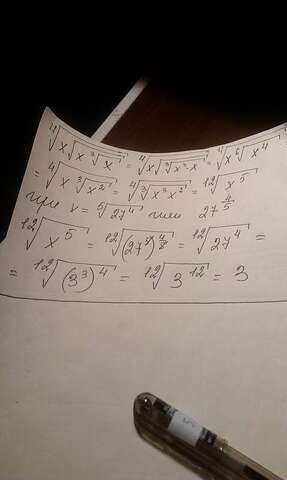 ⁴√(x√(x³√x)) = ⁴√(x√(³√(x³·x))) = ⁴√(x⁶√(x⁴)
= ⁴√(x³√(x²)) = ⁴√(³√(x³x²)) = ¹²√(x⁵)
при x = ⁵√(27⁴) или 27^(4/5)
¹²√(x⁵) = ¹²√((27)^(4/5))⁵ = ¹²√(27⁴) =
= ¹²√((3³)⁴) = ¹²√(3¹²) = 3